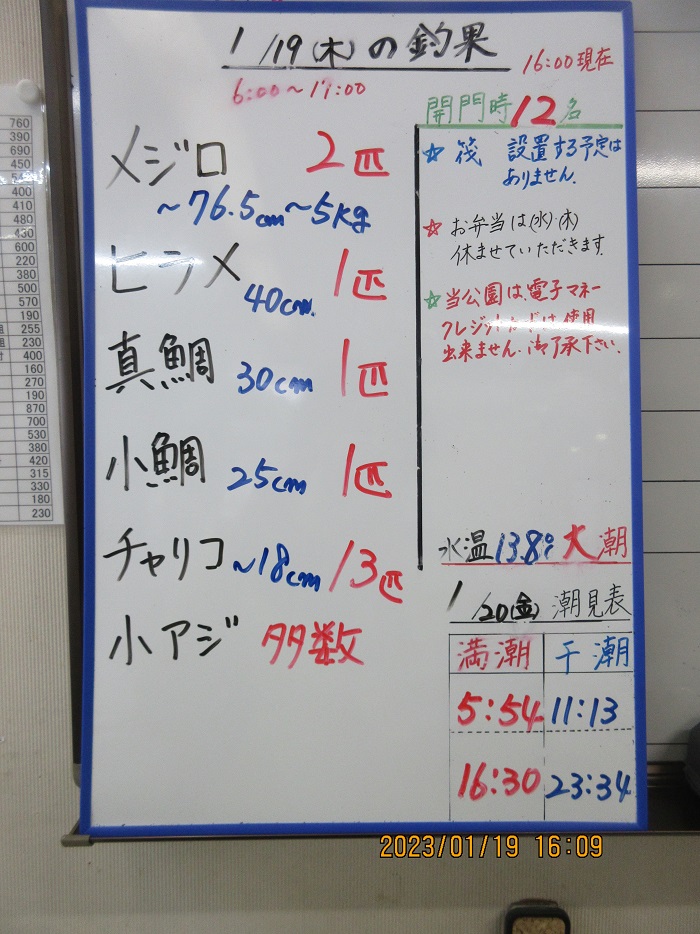 1/19(木)の釣果
16:00現在
6:00～17:00
メジロ 2匹
～76.5cm～5kg
ヒラメ 40cm 1匹
真鯛 30cm 1匹
小鯛 25cm 1匹
チャリコ ～18cm 13匹
小アジ 多数
開門時12名
☆ 筏 設置する予定は
ありません.
☆ お弁当は(水)・(木)
休ませていただきます.
☆ 当公園は、電子マネー
クレジットカードは使用
出来ません.御了承下さい.
水温13.8℃ 大潮
1/20(金) 潮見表
満潮 干潮
5:54 11:13
16:30 23:34
760
390
690
450
400
410
480
430
600
220
380
500
570
190
255
230
400
160
270
190
870
700
530
380
420
315
330
180
230
2023/01/19 16:09